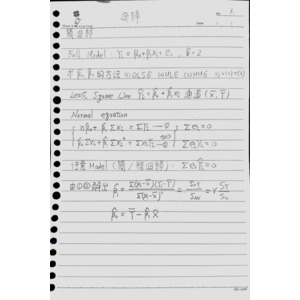 No. 1
Date
簡迴歸
Full Model : Yi = β0+β1xi+εi , k=2
求 β0, β1 的方法
Least Square Line Ŷi = β̂0 + β̂1 xi 必過 (x̄, ȳ)
Normal equation
nβ̂0 + β̂1 Σxi = ΣYi —① Σei = 0
β̂0 Σxi + β̂1 Σxi² = ΣxiYi —② Σeixi = 0
任意 Model (簡/複迴歸) : ΣeiŶi = 0
由①②解出 β̂1 = Σ(xi-x̄)(Yi-Ȳ) / Σ(xi-x̄)² = Sxy / Sxx = r Sy / Sx
β̂0 = Ȳ - β̂1 X̄